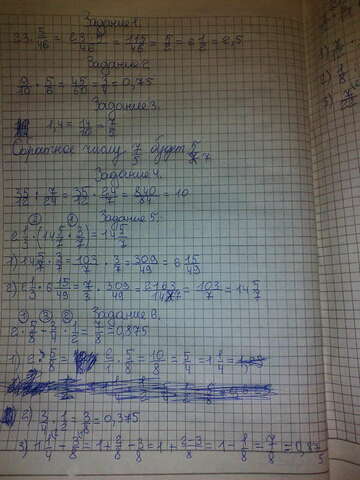 Задание 1.
23 · 5/46 = 23·5/46 = 115/46 = 5/2 = 2 1/2 = 2,5
Задание 2.
9/10 · 5/6 = 45/60 = 3/4 = 0,75
Задание 3.
1,4 = 14/10 = 7/5
Обратное число 7/5 будет 5/7.
Задание 4.
35/12 : 7/24 = 35/12 · 24/7 = 840/84 = 10
Задание 5.
② ①
2 1/3 · (14 5/7 · 3/7) = 14 5/7
1) 14 5/7 · 3/7 = 103/7 · 3/7 = 309/49 = 6 15/49
2) 2 1/3 · 6 15/49 = 7/3 · 309/49 = 2163/147 = 103/7 = 14 5/7
① ③ ② Задание 6.
2 · 5/8 - 3/4 · 1/2 = 7/8 = 0,875
1) 2 · 5/8 = 2/1 · 5/8 = 10/8 = 5/4 = 1 1/4
2) 3/4 · 1/2 = 3/8 = 0,375
3) 1 1/4 - 3/8 = 1 + 2/8 - 3/8 = 1 + 2-3/8 = 1 - 1/8 = 7/8 = 0,875